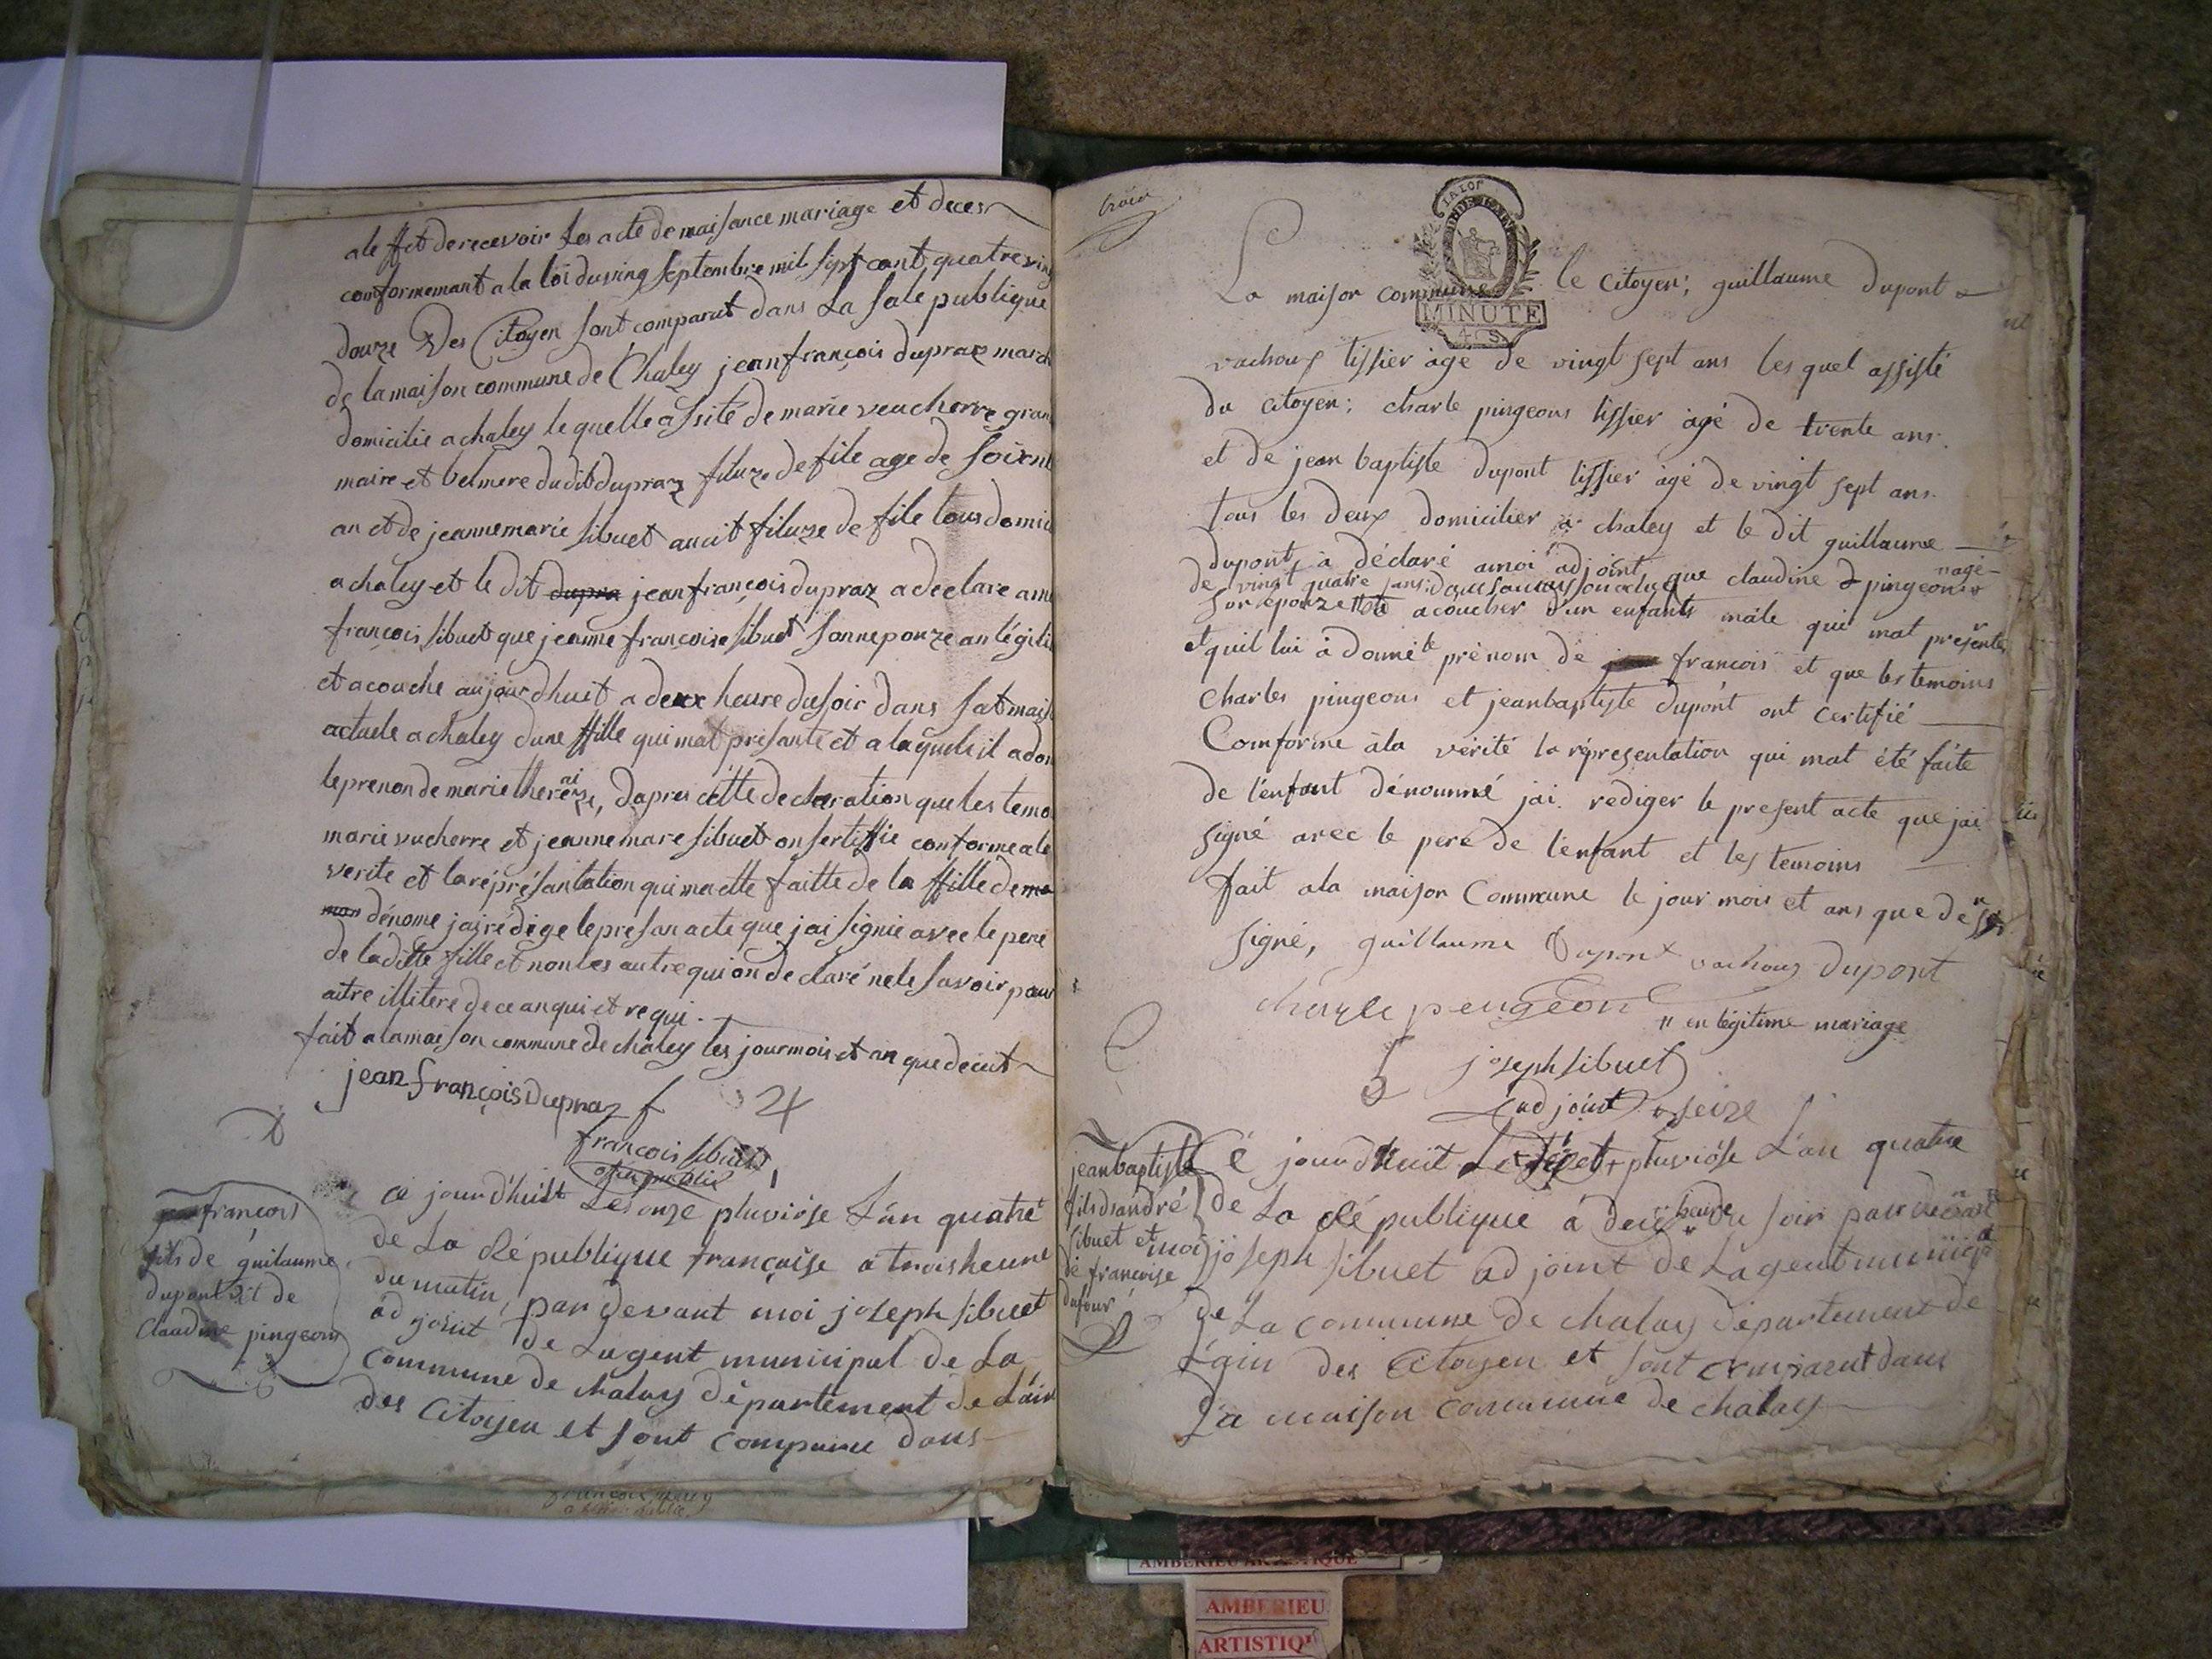 ale ffet de recevoir les acte de naissance mariage et deces
conformemant a la loi du ving septembre mil sept cant quatre ving
douze Des Citoyen sont comparut dans la sale publique
de la maison commune de Chaley jean françois dupraz march
domicilie a chaley le quelle assité de marie veucherre gran
maire et belmere dudit dupraz filuze de file age de soixent
an et de jeanne marie sibuet aucit filuze de file tous domici
a chaley et le dit dupra jean françois dupraz a declare a mo
françois sibuet que jeanne françoise sibuet sonneponze an légiti
et acouché aujourdhuit a deux heure du soir dans sat mais
actuele a chaley dune ffille qui mat présanté et a laquele il a don
le prenon de marie therese, dapres cette declaration que les temo
marie vucherre et jeanne mare sibuet on sertiffié conforme a la
verite et la réprésantation qui ma ette faitte de la ffille de ma
mon dénome jai rédige le presan acte que jai signié avec le pere
de la ditte fille et non les autre qui on declaré ne le savoir pour
aitre illitere de ce anqui et requi.
fait a la maison commune de chaley les jour mois et an que decut
jean françois Dupraz
françois sibuet
ofisié publié
françois
fils de guilaume
dupont et de
Claudine pingeons
ce jourd'huit Les onze pluviôse L'an quatre
de La République française a trois heure
du matin, par devant moi joseph sibuet
adjoint de Lagent municipal de La
commune de chaley département de Lain
des Citoyen et sont comparu dans
troix
LA LOI
MINUTE
La maison commune le Citoyen; guillaume dupont
vachoux tissier âge de vingt sept ans les quel assisté
du citoyen; charle pingeons tissier âgé de trente ans.
et de jean baptiste dupont tissier âgé de vingt sept ans.
tous les deux domicilier à chaley et le dit guillaume
dupont, à déclaré a moi adjoint que claudine pingeons agé
de vingt quatre ans
son éponze acoucher d'un enfants mâle qui mat presenter
et quil lui à donné le prénom de françois et que les temoins
Charles pingeons et jean baptiste dupont ont certifié
Comforme à la vérité la répresentation qui mat été faite
de l'enfant dénommé jai rediger le present acte que jai
signé avec le pere de l'enfant et les temoins
fait a la maison Commune le jour mois et ans que dessus
signé, guillaume Dupont vachoux dupont
charle pengeon
" en légitime mariage
joseph sibuet
adjoint seize
jean baptiste
fils dandré
sibuet et
de françoise
dufour
Cé jourdhuit Le pluviôse L'an quatre
de La République à deux heure du soir par devant
moi joseph sibuet adjoint de Lagent municipal
de La commune de chaley département de
L'ain des Citoyen et sont comparut dans
La maison commune de chaley
AMBERIEU ARTISTIQUE
AMBERIEU
ARTISTIQU